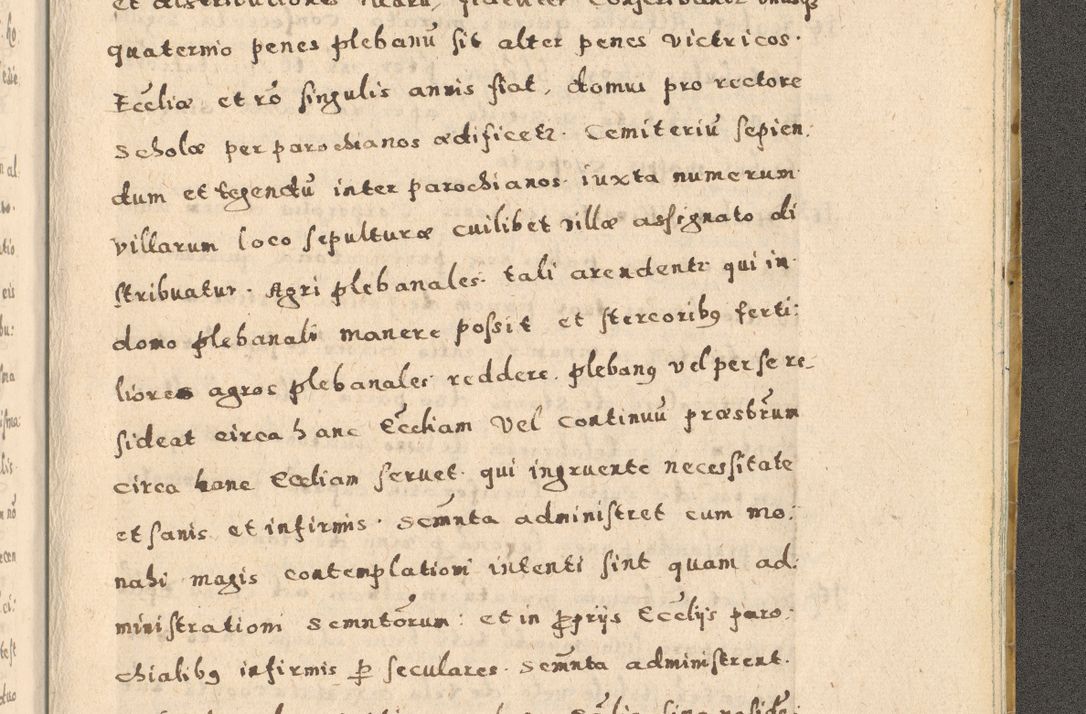 et distributiones
quaternio penes plebanū sit alter penes victricos.
Eccłiæ et rō singulis annis fiat, domus pro rectore
Scholæ per parochianos ædificetr. Cemiteriū sepien
dum et tegendū inter parochianos iuxta numerum
villarum loco sepulturæ cuilibet villæ assignato di
stribuatur. Agri plebanales tali arendentr qui in
domo plebanali manere possit et stercoribꝰ ferti:
liores agros plebanales reddere. plebanꝰ vel per se re-
sideat circa hanc Eccliam Vel continuū præsbrum
circa hanc Eccliam servet. qui ingruente necessitate
et sanis et infirmis. Scmnta administret cum mo:
nahi magis contemplationi intenti sint quam ad:
ministrationi Scmntōrum: et in ꝓprijs Ecclijs paro:
chialibꝰ infirmis ꝑ seculares. Scmnta administrent.